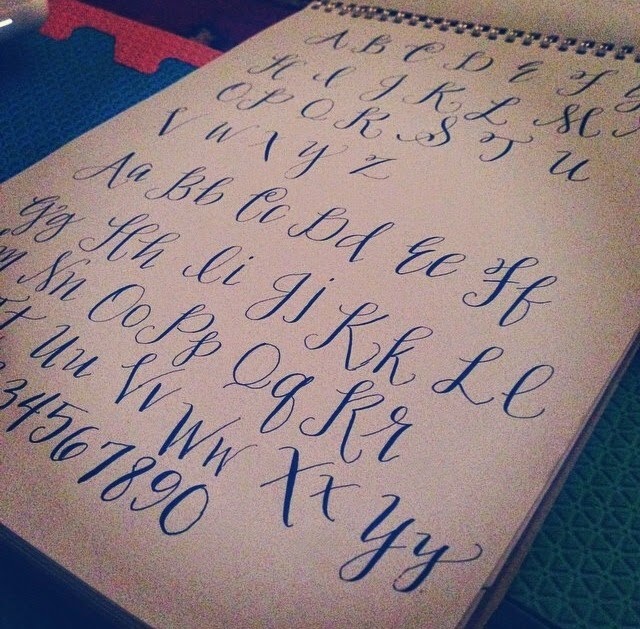 A B C D E F G
H I J K L M
O P Q R S T U
V W X Y Z
Aa Bb Cc Dd Ee Ff
Gg Hh Ii Jj Kk Ll
Nn Oo Pp Qq Rr
Uu Vv Ww Xx Yy
34567890